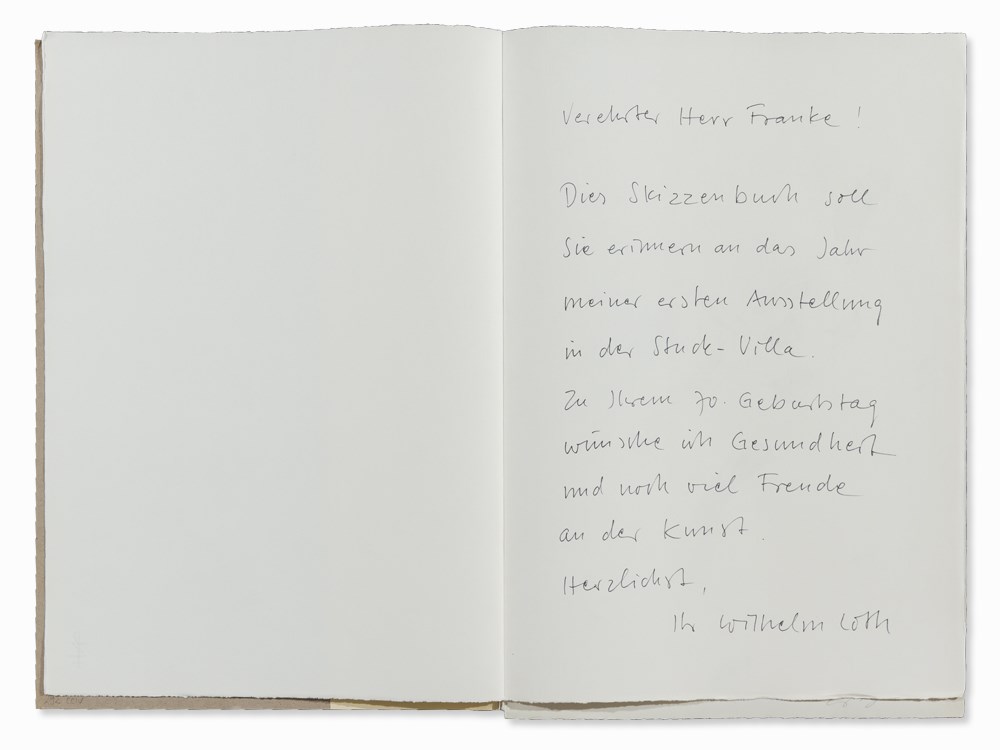 Verehrter Herr Franke!
Dies Skizzenbuch soll
Sie erinnern an das Jahr
meiner ersten Ausstellung
in der Stuck-Villa.
Zu Ihrem 70. Geburtstag
wünsche ich Gesundheit
und noch viel Freude
an der Kunst.
Herzlichst,
Ihr Wilhelm Loth